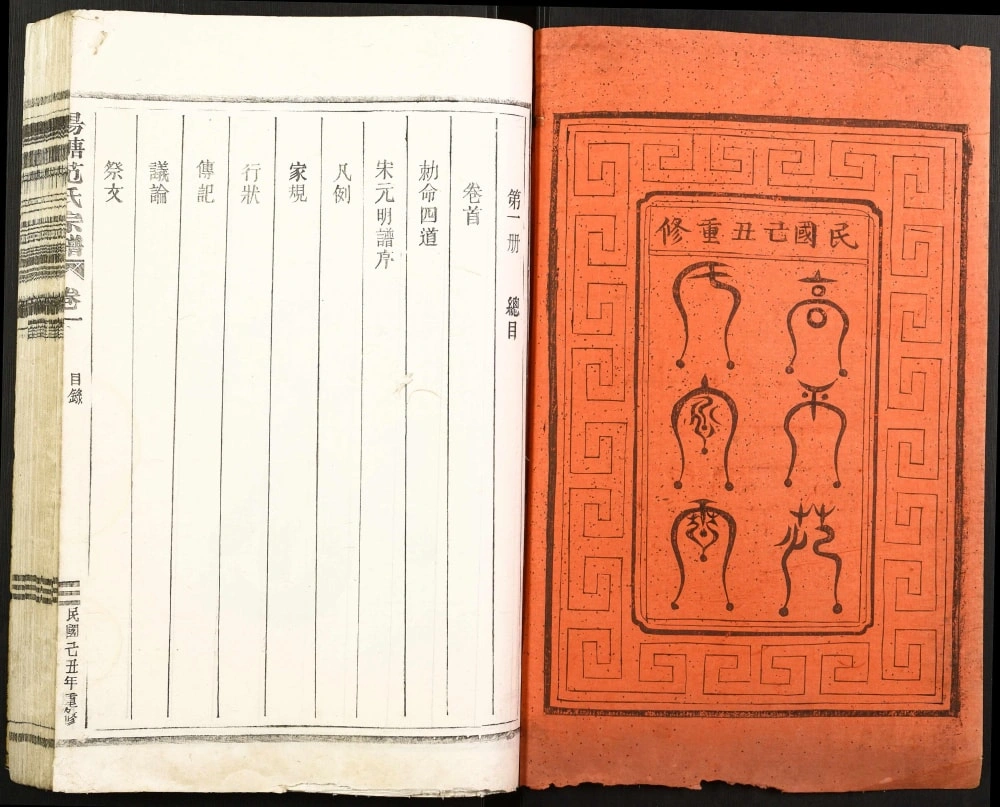 民國己丑重修
高平范
氏家乘
第一册 總目
卷首
勅命四道
宋元明譜序
凡例
家規
行狀
傳記
議論
祭文
塘范氏宗譜 卷一 目錄 民國己丑年重修